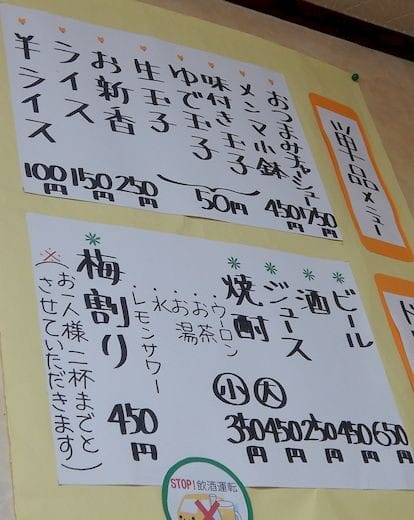 単品メニュー
おつまみチャーシュー 750円
メンマ小鉢 450円
味付き玉子
ゆで玉子
生玉子
50円
お新香 250円
ライス 150円
半ライス 100円
ビール 650円
酒 450円
ジュース 250円
焼酎 大 450円
小 350円
・ウーロン
・お茶
・お湯
・水
・レモンサワー
梅割り 450円
(※お一人様二杯までと
させていただきます)
STOP!飲酒運転